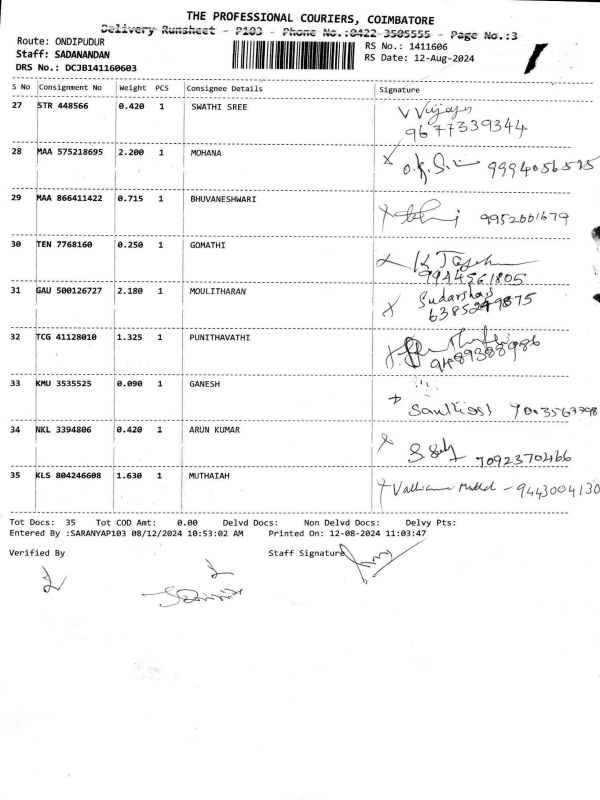 THE PROFESSIONAL COURIERS, COIMBATORE
Delivery Runsheet - P103 - Phone No.:0422-3505555 - Page No.:3
Route: ONDIPUDUR
RS No.: 1411606
Staff: SADANANDAN
RS Date: 12-Aug-2024
DRS No.: DCJB141160603
S No Consignment No Weight PCS Consignee Details Signature
27 STR 448566 0.420 1 SWATHI SREE
9677339344
28 MAA 575218695 2.200 1 MOHANA
9994056595
29 MAA 866411422 0.715 1 BHUVANESHWARI
9952001679
30 TEN 7768160 0.250 1 GOMATHI
9944561805
31 GAU 500126727 2.180 1 MOULITHARAN Sudarshan
6385249875
32 TCG 41128010 1.325 1 PUNITHAVATHI
9489388986
33 KMU 3535525 0.090 1 GANESH
34 NKL 3394806 0.420 1 ARUN KUMAR
7092370466
35 KLS 804246608 1.630 1 MUTHAIAH
9443004130
Tot Docs: 35 Tot COD Amt: 0.00 Delvd Docs: Non Delvd Docs: Delvy Pts:
Entered By :SARANYAP103 08/12/2024 10:53:02 AM Printed On: 12-08-2024 11:03:47
Verified By Staff Signature